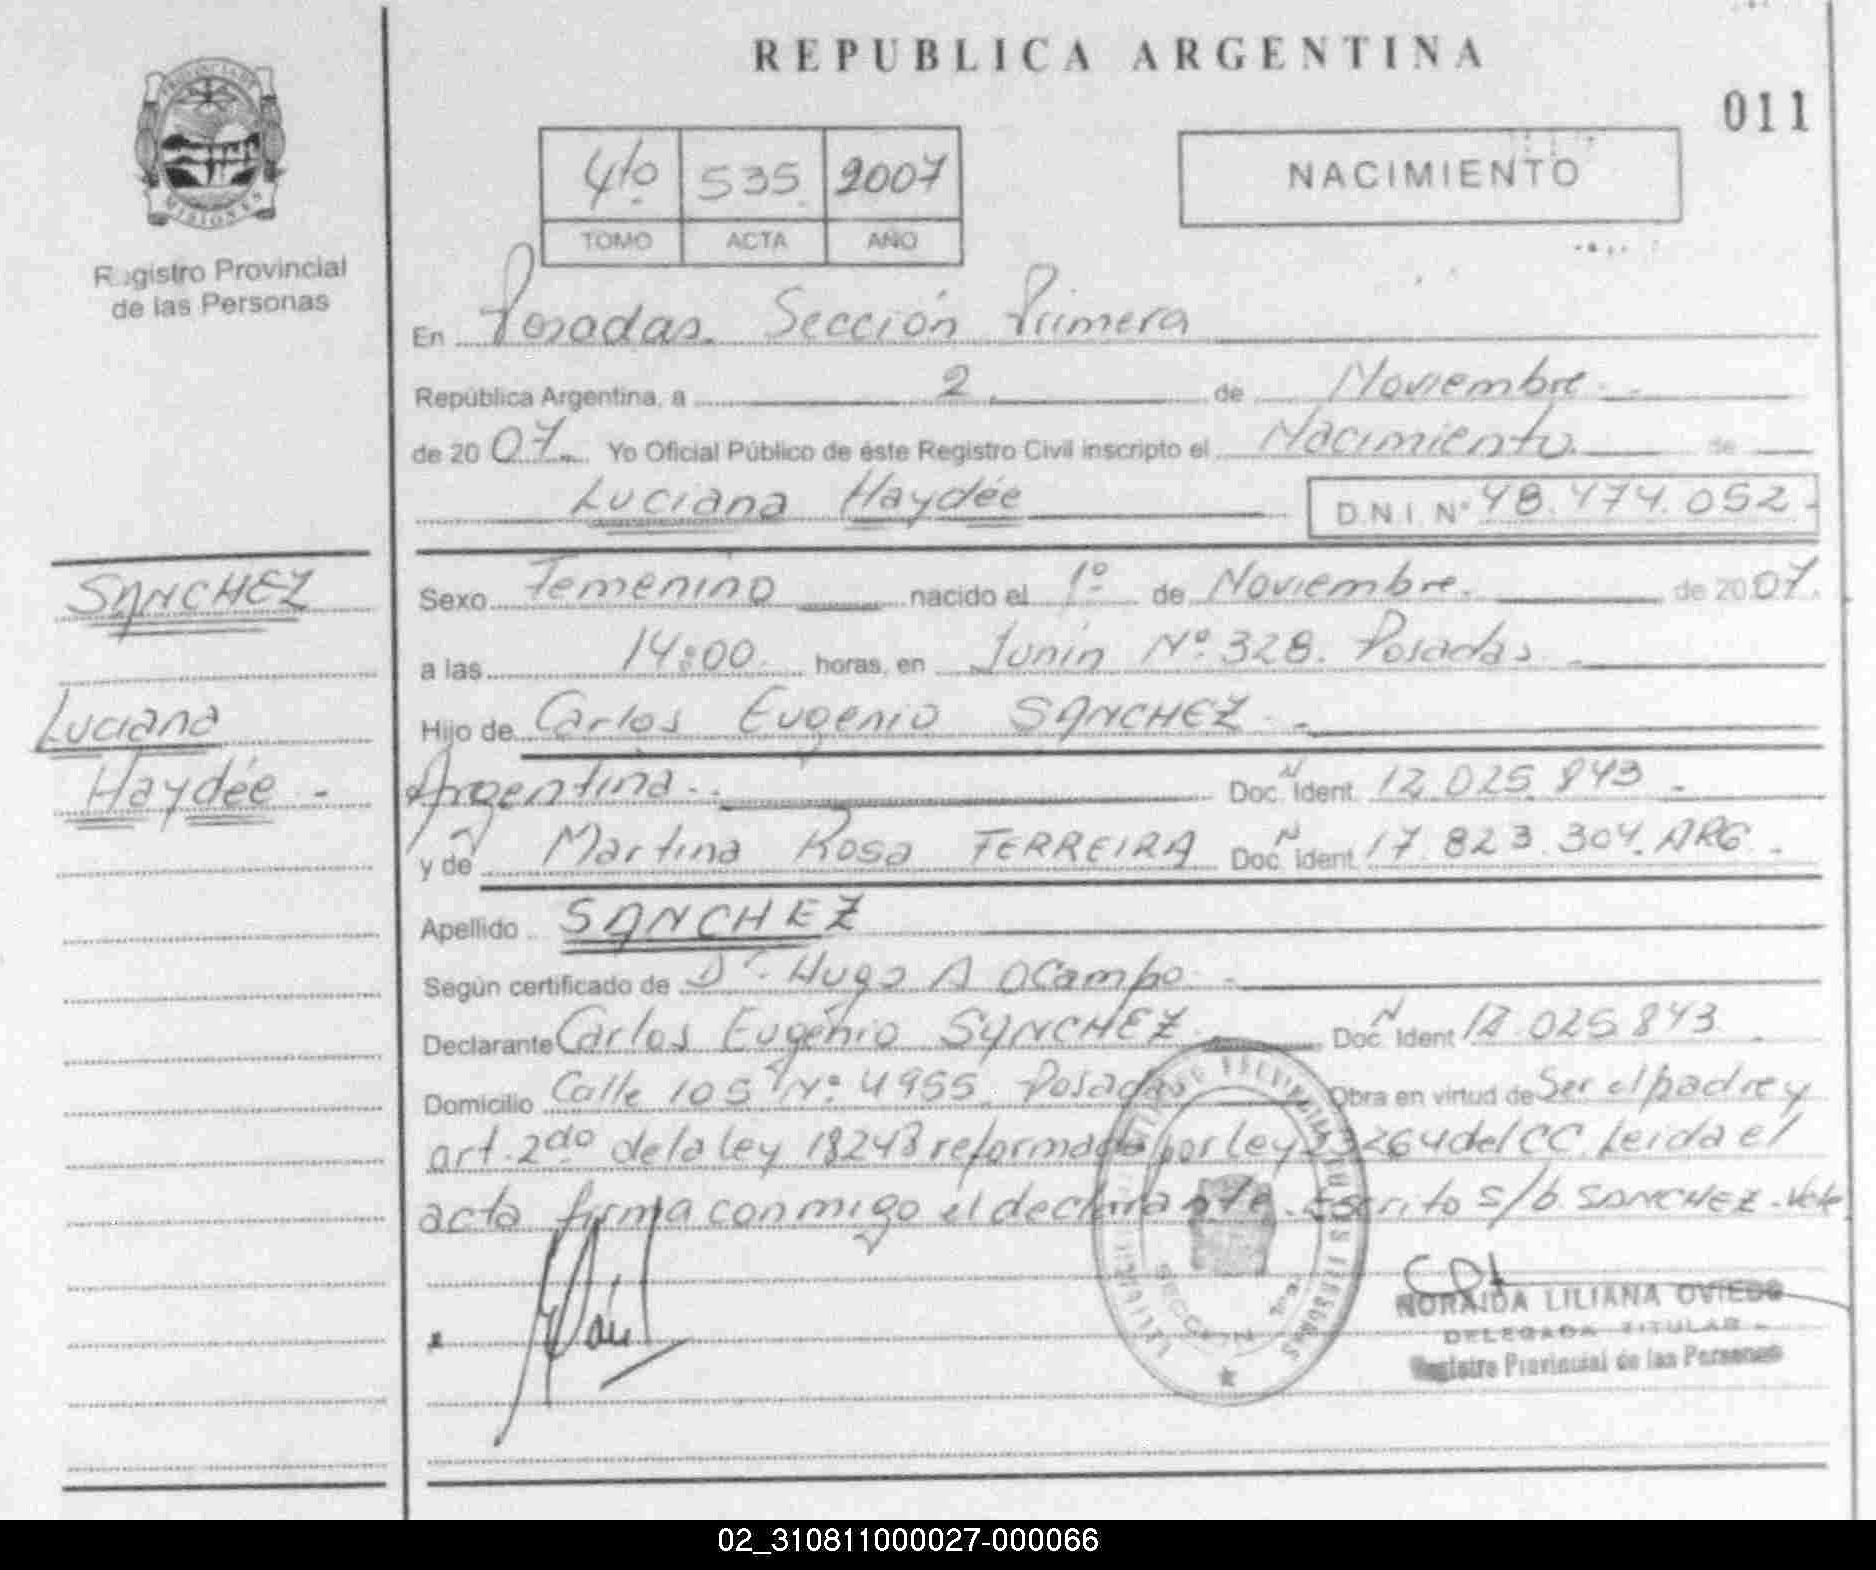 REPUBLICA ARGENTINA
011
PROVINCIA DE
MISIONES
Registro Provincial
de las Personas
4to 535 2007
TOMO ACTA AÑO
NACIMIENTO
En Posadas. Sección Primera
República Argentina, a 2 de Noviembre.-
de 2007. Yo Oficial Público de éste Registro Civil inscripto el Nacimiento. de
Luciana Haydée
D.N.I. Nº 48.474.052.-
SANCHEZ
Luciana
Haydée -
Sexo Femenino nacido el 1º de Noviembre. de 2007.
a las 14:00. horas, en Junin Nº 328. Posadas -
Hijo de Carlos Eugenio SANCHEZ.-
Argentina.- Doc. Ident. 12.025.843 -
y de Martina Rosa FERREIRA Doc. Ident. 17.823.304. ARG.-
Apellido SANCHEZ
Según certificado de Dr. Hugo A Ocampo.-
Declarante Carlos Eugenio SANCHEZ Doc. Ident 12.025.843.
Domicilio Calle 105 Nº 4955. Posadas Obra en virtud de Ser el padre y
art. 2do de la ley 18248 reformado por ley 23264 del CC. Leida el
acta firma conmigo el declarante. Escrito s/b. SANCHEZ - Vale
NORAIDA LILIANA OVIEDO
DELEGADA TITULAR
Registro Provincial de las Personas
SECCION 1ra
02_310811000027-000066